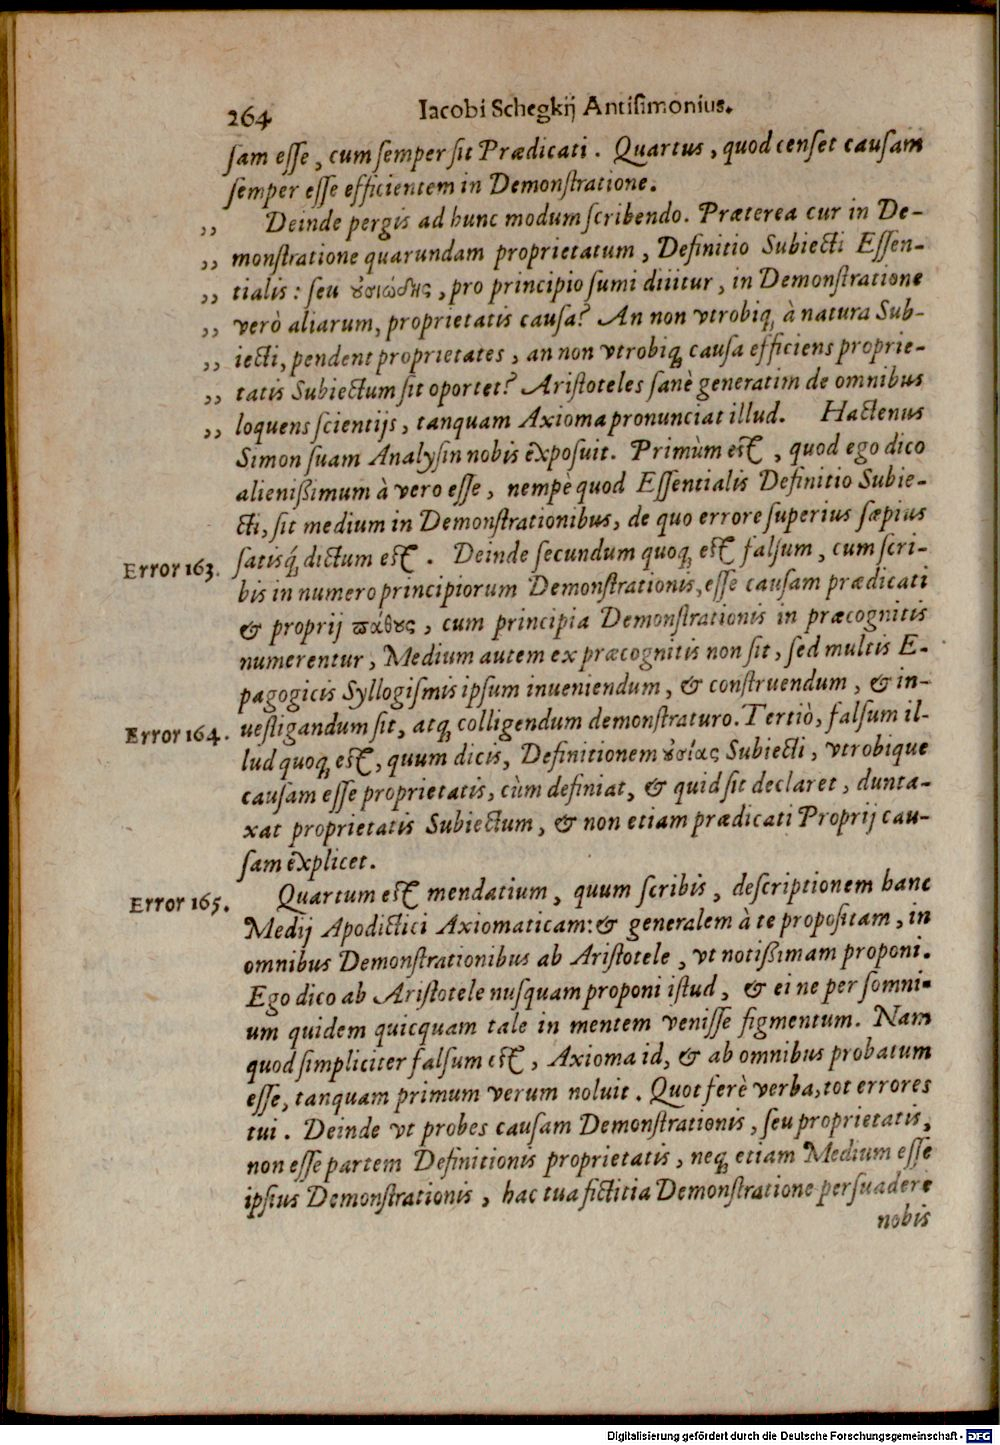 264 Iacobi Schegkij Antisimonius.
sam esse, cum semper sit Prædicati. Quartus, quod censet causam
semper esse efficientem in Demonstratione.
,, Deinde pergis ad hunc modum scribendo. Præterea cur in De-
,, monstratione quarundam proprietatum, Definitio Subiecti Essen-
,, tialis: seu ȣ̓σιώδης, pro principio sumi diiitur, in Demonstratione
,, verò aliarum, proprietatis causa? An non vtrobiq; à natura Sub-
,, iecti, pendent proprietates, an non vtrobiq; causa efficiens proprie-
,, tatis Subiectum sit oportet? Aristoteles sanè generatim de omnibus
,, loquens scientijs, tanquam Axioma pronunciat illud. Hactenus
Simon suam Analysin nobis exposuit. Primùm est, quod ego dico
alienißimum à vero esse, nempè quod Essentialis Definitio Subie-
cti, sit medium in Demonstrationibus, de quo errore superius sæpius
Error 163. satisq́; dictum est. Deinde secundum quoq; est falsum, cum scri-
bis in numero principiorum Demonstrationis, esse causam prædicati
& proprij ϖάθȣς, cum principia Demonstrationis in præcognitis
numerentur, Medium autem ex præcognitis non sit, sed multis E-
pagogicis Syllogismis ipsum inueniendum, & construendum, & in-
Error 164. uestigandum sit, atq; colligendum demonstraturo. Tertiò, falsum il-
lud quoq; est, quum dicis, Definitionem ȣ̓σίας Subiecti, vtrobique
causam esse proprietatis, cùm definiat, & quid sit declaret, dunta-
xat proprietatis Subiectum, & non etiam prædicati Proprij cau-
sam explicet.
Error 165. Quartum est mendatium, quum scribis, descriptionem hanc
Medij Apodictici Axiomaticam: & generalem à te propositam, in
omnibus Demonstrationibus ab Aristotele, vt notißimam proponi.
Ego dico ab Aristotele nusquam proponi istud, & ei ne per somni-
um quidem quicquam tale in mentem venisse figmentum. Nam
quod simpliciter falsum est, Axioma id, & ab omnibus probatum
esse, tanquam primum verum noluit. Quot ferè verba, tot errores
tui. Deinde vt probes causam Demonstrationis, seu proprietatis,
non esse partem Definitionis proprietatis, neq; etiam Medium esse
ipsius Demonstrationis, hac tua fictitia Demonstratione persuadere
nobis
Digitalisierung gefördert durch die Deutsche Forschungsgemeinschaft - DFG